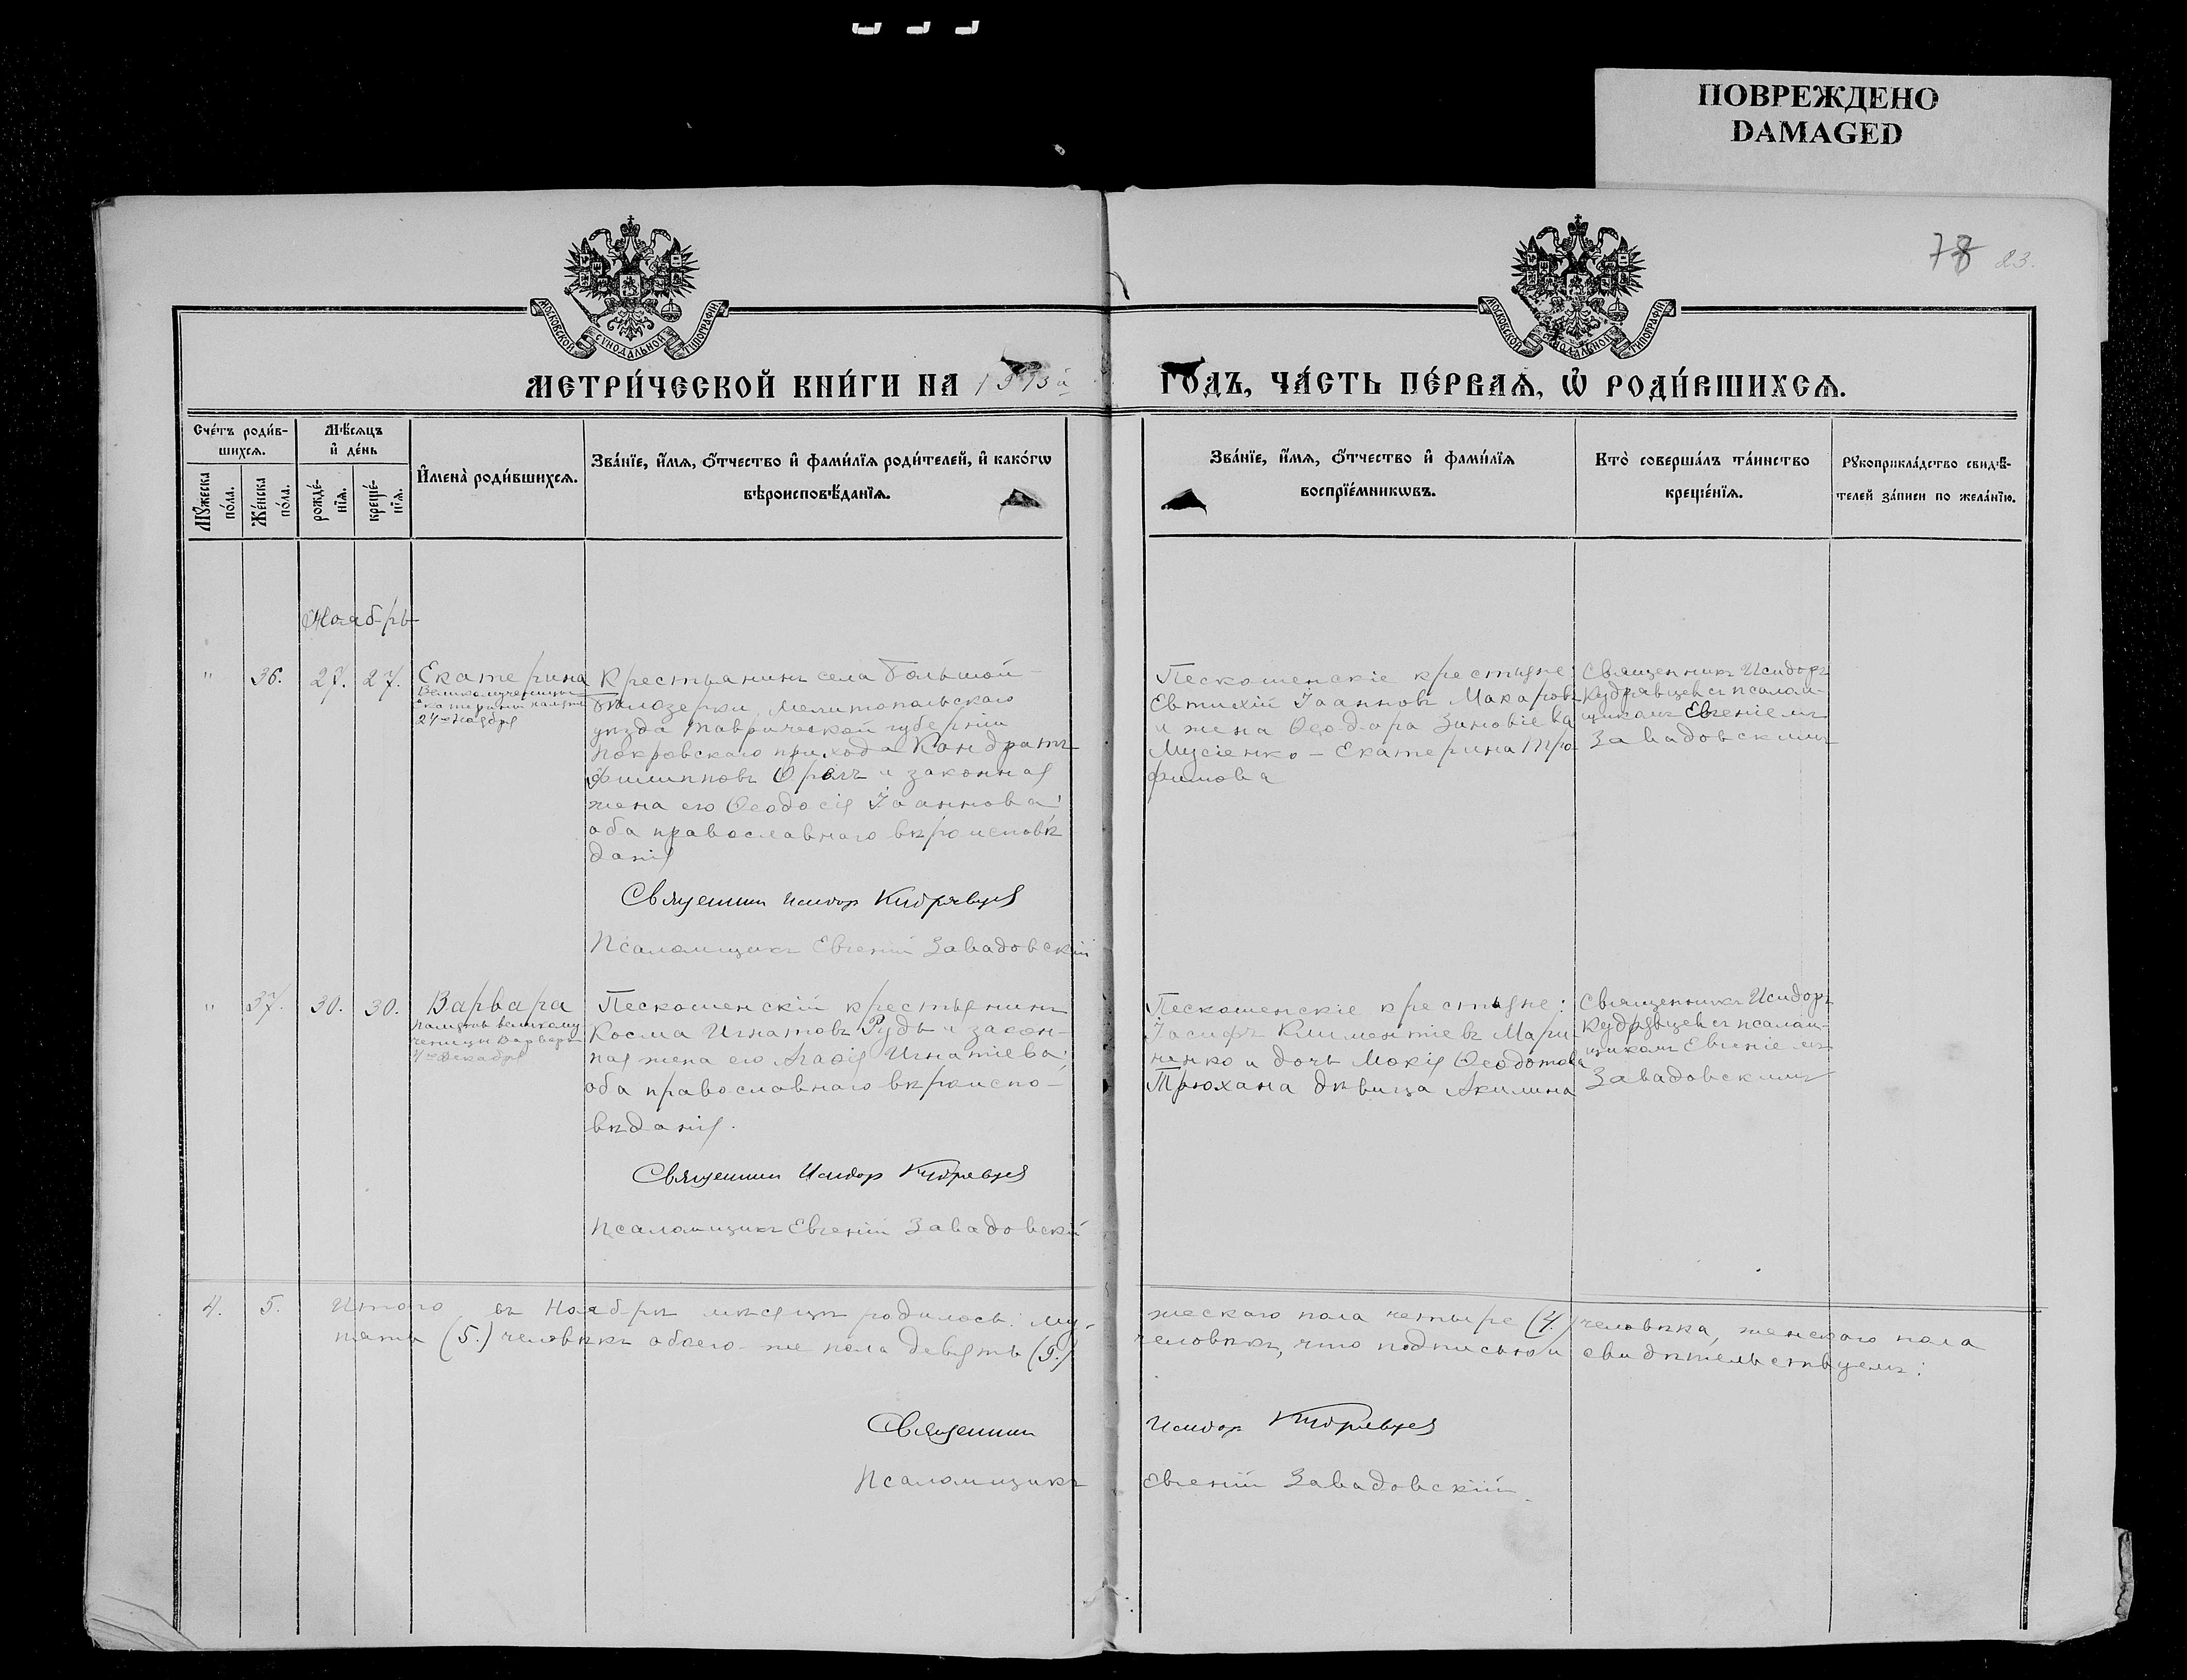 ПОВРЕЖДЕНО
DAMAGED
78 23.
МОСКОВСКОЙ СѴНОДАЛЬНОЙ ТИПОГРАФІИ
МОСКОВСКОЙ СѴНОДАЛЬНОЙ ТИПОГРАФІИ
МЕТРИ́ЧЕСКОЙ КНИ́ГИ НА 1913й
ГОДЪ, ЧА́СТЬ ПЕ́РВАѦ, Ѡ҆ РОДИ́ВШИХСѦ.
Сче́тъ роди́в-
шихсѧ.
Мꙋ́жеска
по́ла.
Же́нска
по́ла.
Мѣ́сѧцъ
и҆ де́нь
рожде́-
нїѧ.
креще́-
нїѧ.
И҆мена̀ роди́вшихсѧ.
Зва́нїе, и҆́мѧ, ѻ҆́тчество и҆ фами́лїѧ роди́телей, и҆ како́гѡ
вѣроисповѣ́данїѧ.
Зва́нїе, и҆́мѧ, ѻ҆́тчество и҆ фами́лїѧ
воспрїе́мникѡвъ.
Кто̀ соверша́лъ та́инство
креще́нїѧ.
Рꙋкоприкла́дство свидѣ́-
телей за́писи по жела́нїю.
Ноябрь
" 36. 27. 27.
Екатерина
Великомученицы
Екатерины память
24го Ноября
Крестьянинъ села Большой
Бѣлозерки, Мелитопольскаго
уѣзда Таврической губерніи
Покровскаго прихода Кондратъ
Филипповъ Орелъ и законная
жена его Ѳеодосія Іоаннова;
оба православнаго вѣроисповѣ
данія
Священник Исидор Кудрявцев
Псаломщикъ Евгеній Завадовскій
Пескошенскіе крестьяне:
Евтихій Іоанновъ Макаровъ
и жена Ѳеодора Зиновіева
Мусіенко – Екатерина Тро-
фимова
Священникъ Исидоръ
Кудрявцевъ съ псалом-
щикомъ Евгеніемъ
Завадовскимъ
" 37. 30. 30.
Варвара
память великому
ченицы Варвары
4го Декабря
Пескошенскій крестьянинъ
Косма Игнатовъ Рудь и закон-
ная жена его Агаѳія Игнатіева;
оба православнаго вѣроиспо-
вѣданія.
Священник Исидор Кудрявцев
Псаломщикъ Евгеній Завадовскій
Пескошенскіе крестьяне:
Іосифъ Климентіевъ Мари
ненко и дочь Мокія Ѳеодотова
Трюхана дѣвица Акилина
Священникъ Исидоръ
Кудрявцевъ съ псалом-
щикомъ Евгеніемъ
Завадовскимъ
4. 5. Итого въ Ноябрѣ мѣсяцѣ родилось: му-
жескаго пола четыре (4.) человѣка, женскаго пола
пять (5.) человѣкъ обоего-же пола девять (9.)
человѣкъ, что подписью и свидѣтельствуемъ:
Священник Исидор Кудрявцев
Псаломщикъ Евгеній Завадовскій.